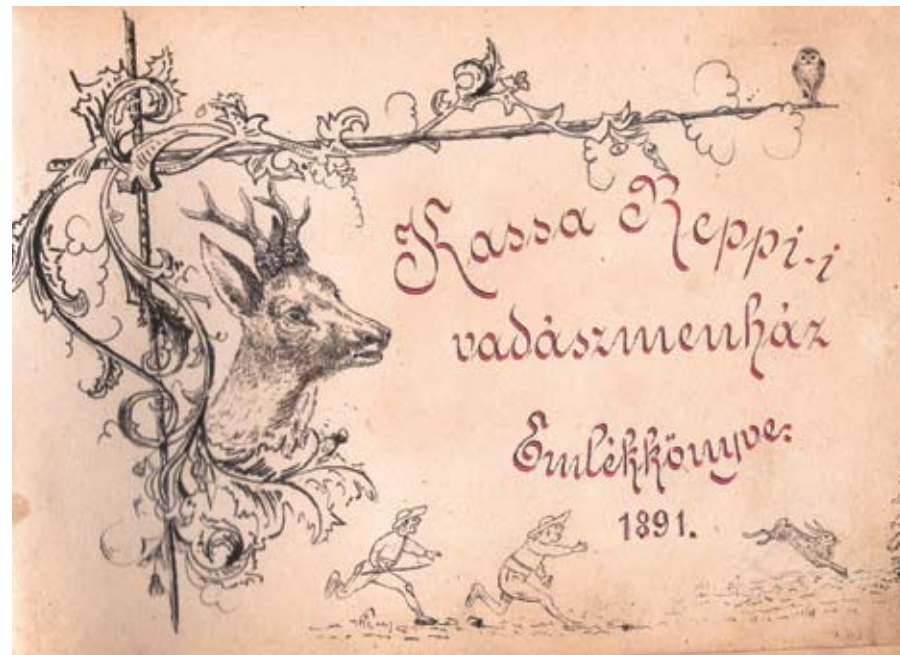 Kassa Reppi-i
vadászmenház
Emlékkönyve.
1891.